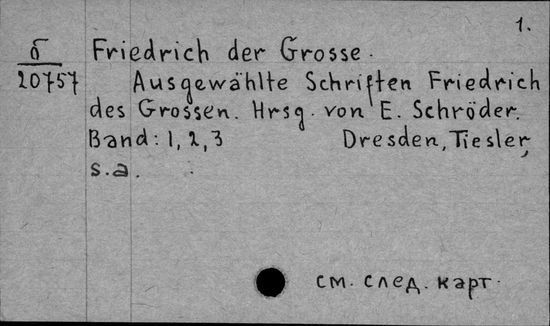 1.
б Friedrich der Grosse.
20757 Ausgewählte Schriften Friedrich
des Grossen. Hrsg. von E. Schröder.
Band: 1, 2, 3 Dresden, Tiesler,
s.a.
см. след. карт.